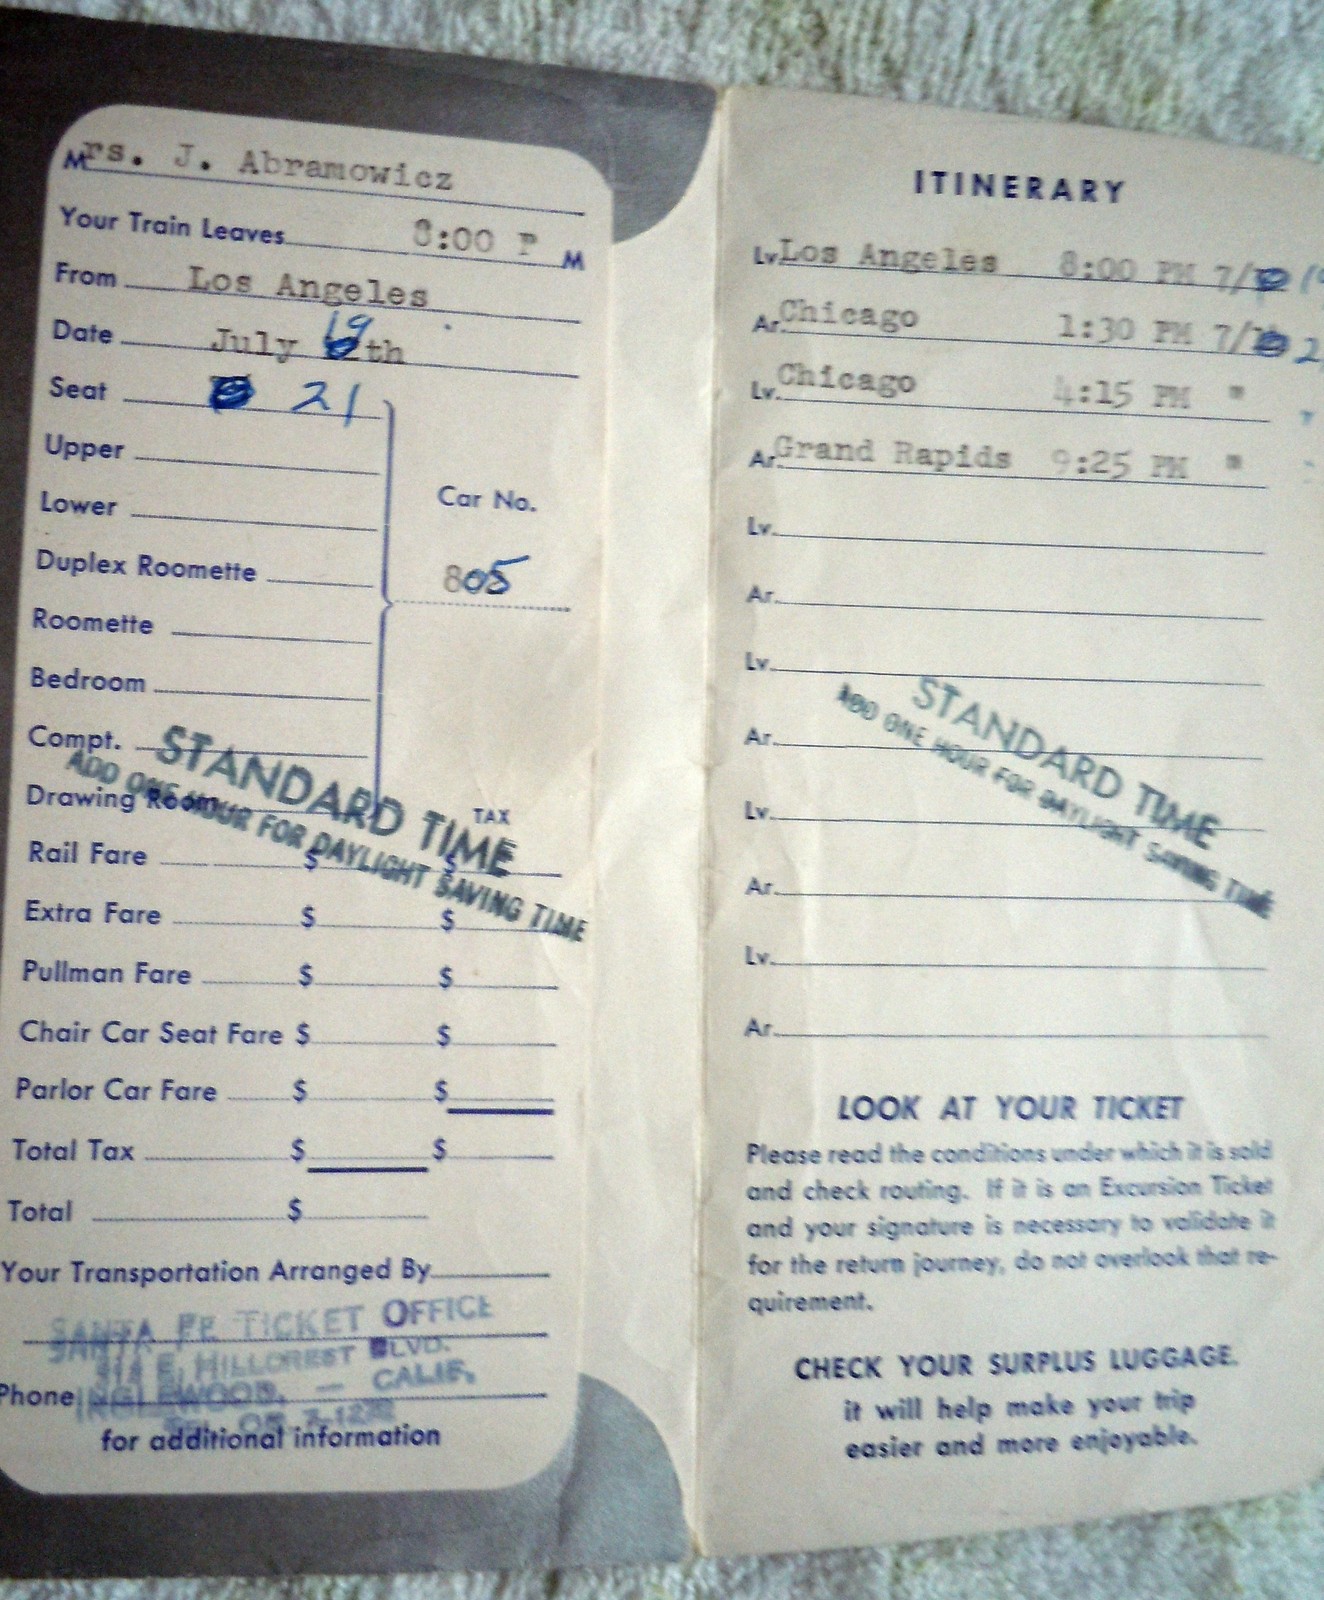 Mrs. J. Abramowicz
Your Train Leaves 8:00 P M
From Los Angeles
Date July 19 th
Seat 21
Upper
Lower
Car No.
Duplex Roomette
805
Roomette
Bedroom
Compt.
Drawing Room
STANDARD TIME
ADD ONE HOUR FOR DAYLIGHT SAVING TIME
TAX
Rail Fare $ $
Extra Fare $ $
Pullman Fare $ $
Chair Car Seat Fare $ $
Parlor Car Fare $ $
Total Tax $ $
Total $
Your Transportation Arranged By
SANTA FE TICKET OFFICE
E. HILLCREST BLVD.
INGLEWOOD, — CALIF.
Phone
for additional information
ITINERARY
Lv. Los Angeles 8:00 PM 7/
Ar. Chicago 1:30 PM 7/
Lv. Chicago 4:15 PM "
Ar. Grand Rapids 9:25 PM "
Lv.
Ar.
Lv.
STANDARD TIME
ADD ONE HOUR FOR DAYLIGHT SAVING TIME
Ar.
Lv.
Ar.
Lv.
Ar.
LOOK AT YOUR TICKET
Please read the conditions under which it is sold
and check routing. If it is an Excursion Ticket
and your signature is necessary to validate it
for the return journey, do not overlook that re-
quirement.
CHECK YOUR SURPLUS LUGGAGE.
it will help make your trip
easier and more enjoyable.